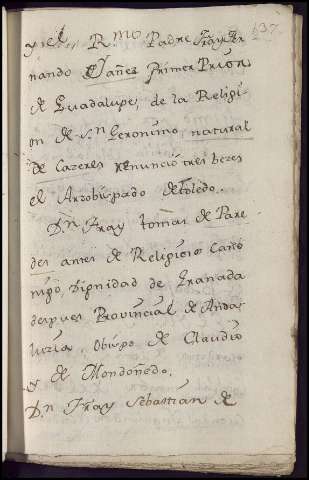 137
y el R.mo Padre Fray Fer
nando Yañez Primer Prior
de Guadalupe, de la Religi-
on de S.n Geronimo, natural
de Cazeres renunció tres bezes
el Arzobispado de Toledo.
D.n Fray tomas de Pare
des antes de Religioso Cano
nigo, Dignidad de Granada
despues Provincial de Anda-
luzia, Obispo de Claudio
y de Mondoñedo.
D.n Fray Sebastian de